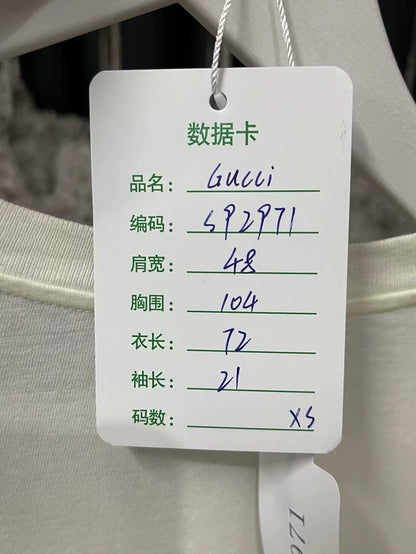 数据卡
品名： Gucci
编码： 592971
肩宽： 48
胸围： 104
衣长： 72
袖长： 21
码数： XS